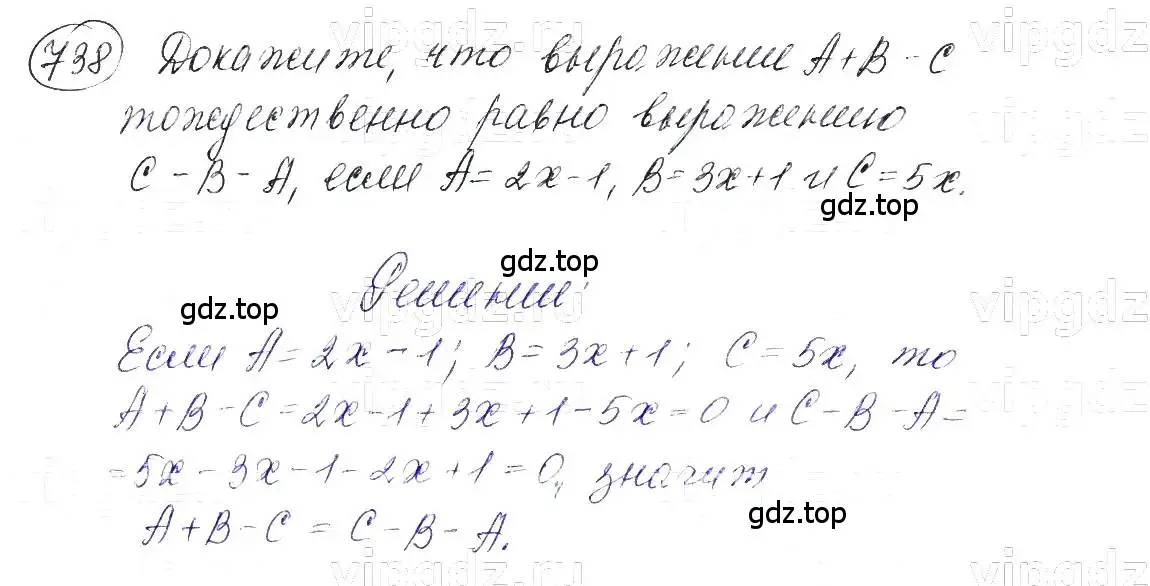 738 Докажите, что выражение A+B-C
тождественно равно выражению
C-B-A, если A=2x-1, B=3x+1 и C=5x.
gdz.top
gdz.top
Решение:
gdz.top
Если A=2x-1; B=3x+1; C=5x, то
A+B-C=2x-1+3x+1-5x=0 и C-B-A=
=5x-3x-1-2x+1=0, значит
A+B-C=C-B-A.
gdz.top
vipgdz.ru
vipgdz.ru